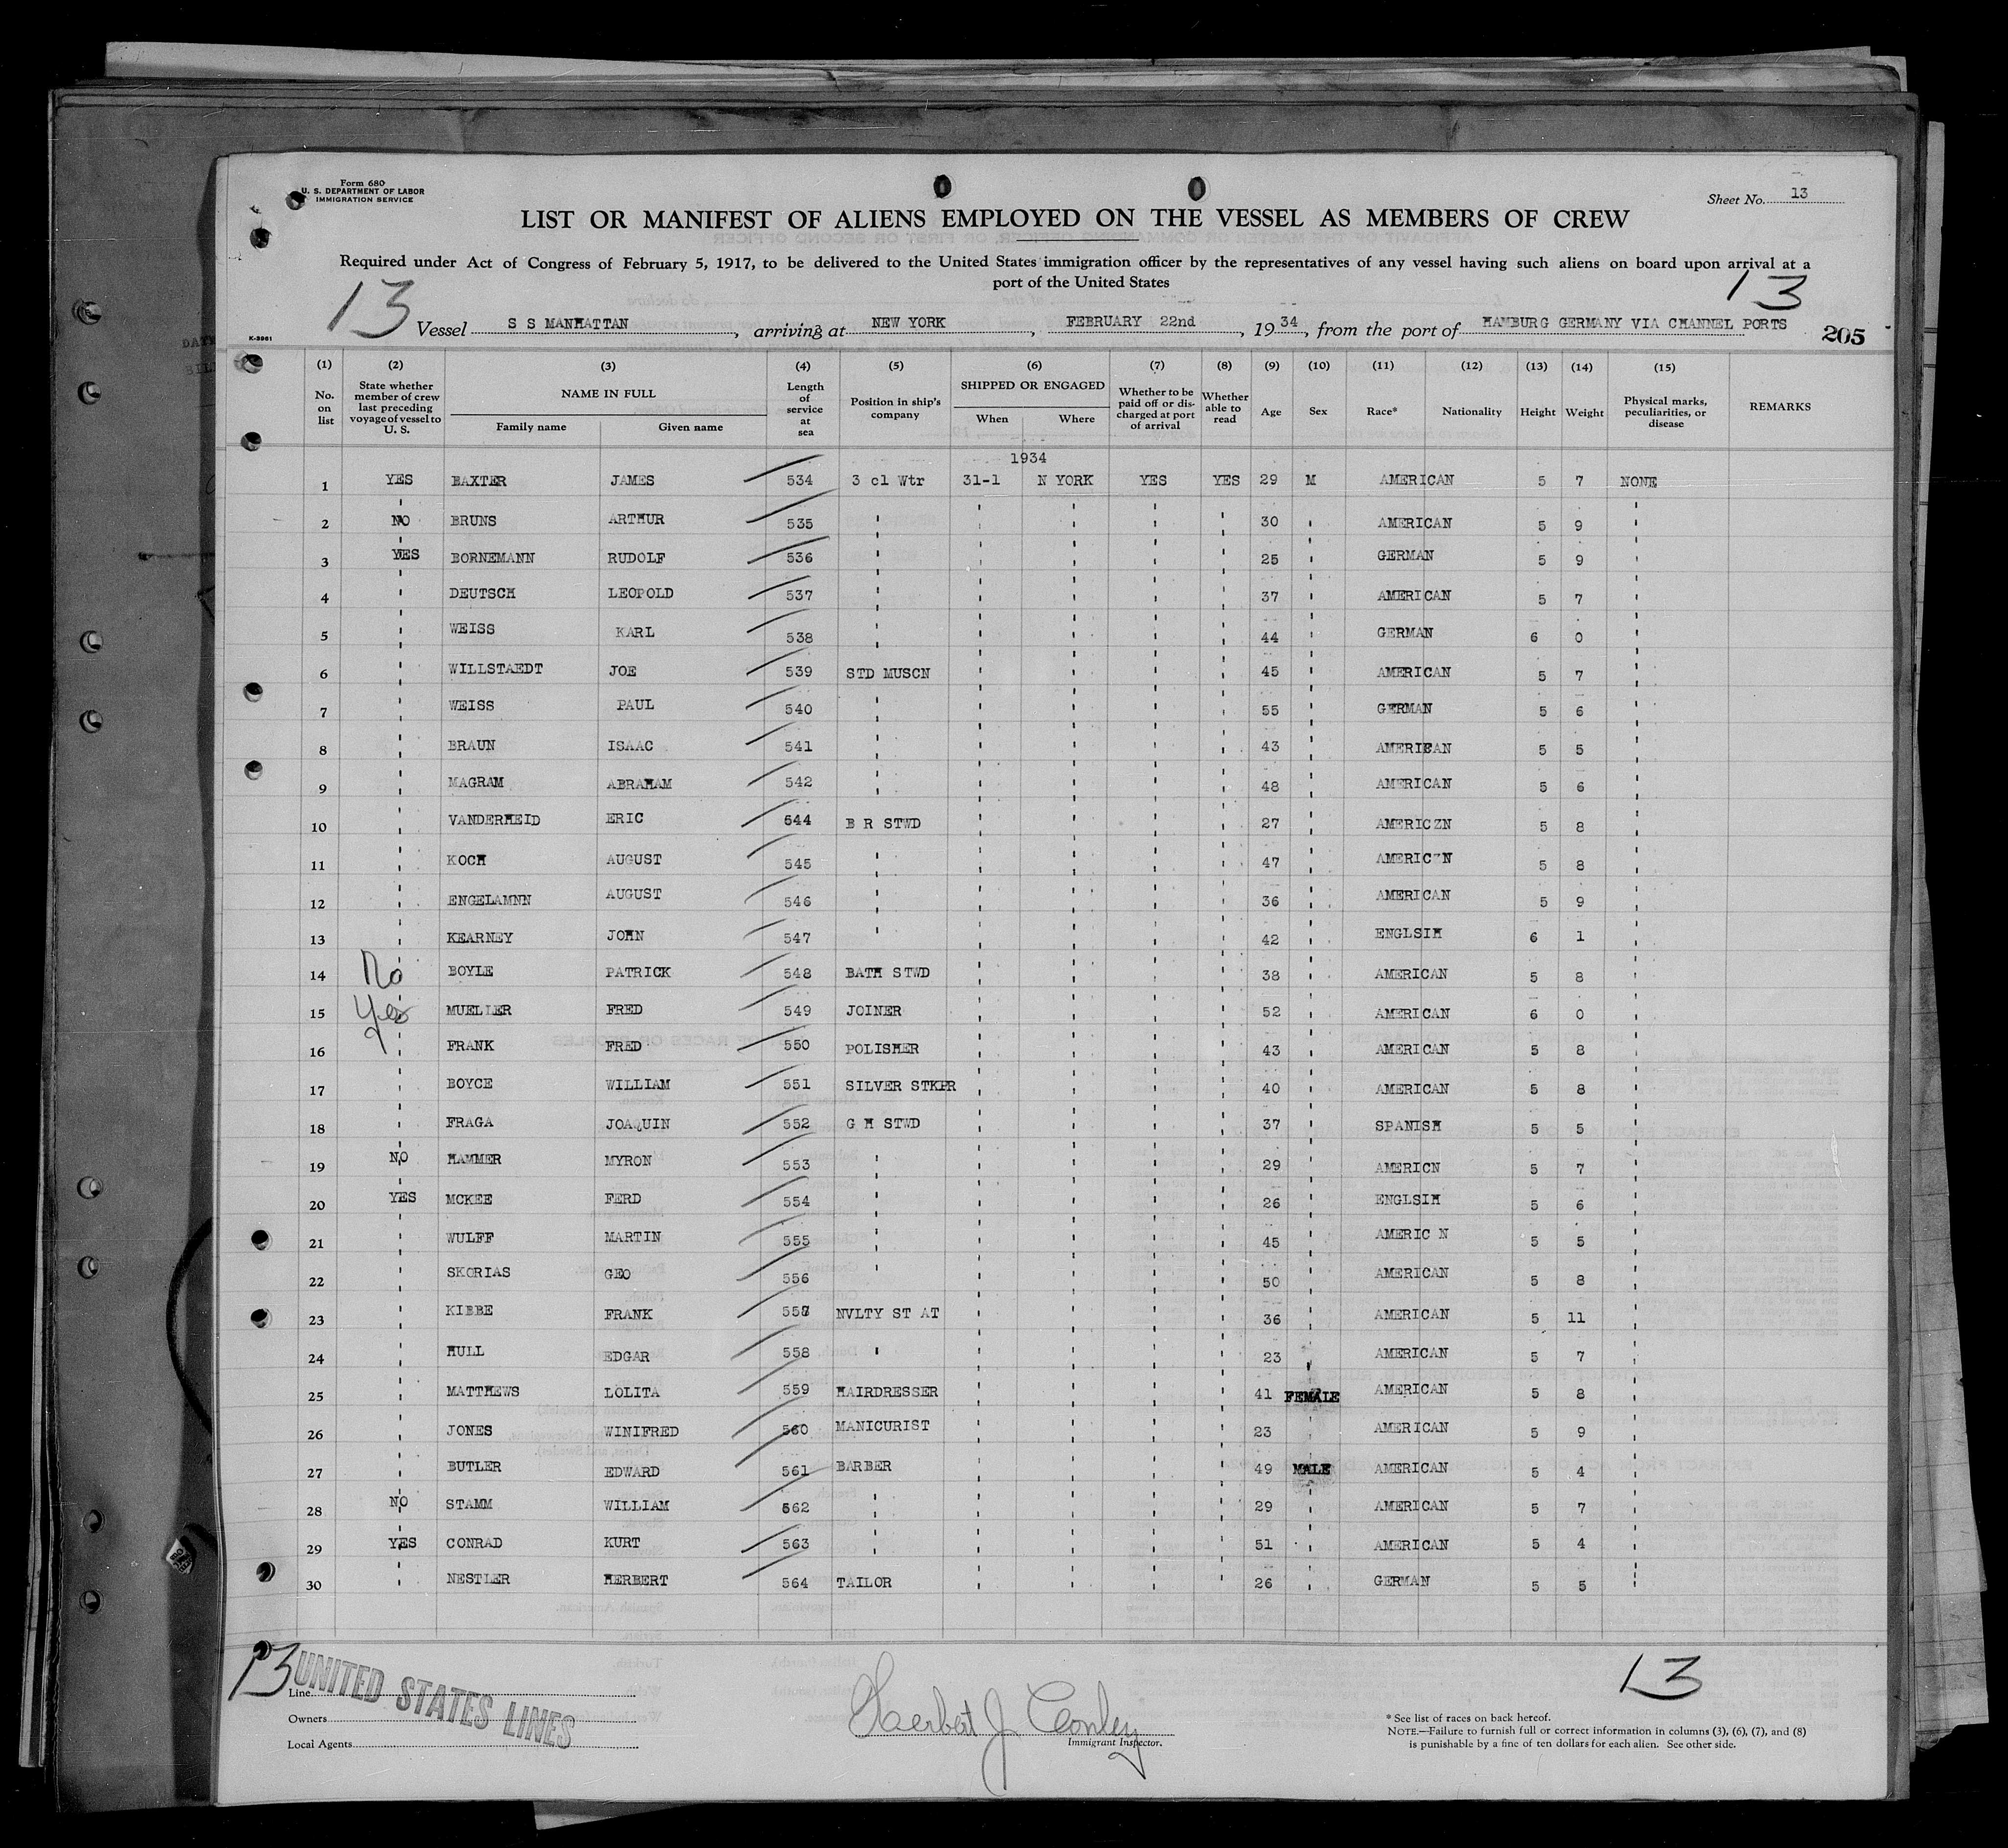 Form 680
U. S. DEPARTMENT OF LABOR
IMMIGRATION SERVICE
Sheet No. 13
LIST OR MANIFEST OF ALIENS EMPLOYED ON THE VESSEL AS MEMBERS OF CREW
Required under Act of Congress of February 5, 1917, to be delivered to the United States immigration officer by the representatives of any vessel having such aliens on board upon arrival at a
port of the United States
13 13
Vessel S S MANHATTAN, arriving at NEW YORK, FEBRUARY 22nd, 1934, from the port of HAMBURG GERMANY VIA CHANNEL PORTS 205
(1) (2) (3) (4) (5) (6) (7) (8) (9) (10) (11) (12) (13) (14) (15)
No. on list State whether member of crew last preceding voyage of vessel to U. S. NAME IN FULL Family name Given name Length of service at sea Position in ship's company SHIPPED OR ENGAGED When Where Whether to be paid off or discharged at port of arrival Whether able to read Age Sex Race* Nationality Height Weight Physical marks, peculiarities, or disease REMARKS
1934
1 YES BAXTER JAMES 534 3 cl Wtr 31-1 N YORK YES YES 29 M AMERICAN 5 7 NONE
2 NO BRUNS ARTHUR 535 ' ' ' ' ' 30 ' AMERICAN 5 9 '
3 YES BORNEMANN RUDOLF 536 ' ' ' ' ' 25 ' GERMAN 5 9 '
4 ' DEUTSCH LEOPOLD 537 ' ' ' ' ' 37 ' AMERICAN 5 7 '
5 ' WEISS KARL 538 ' ' ' ' ' 44 ' GERMAN 6 0 '
6 ' WILLSTAEDT JOE 539 STD MUSCN ' ' ' ' 45 ' AMERICAN 5 7 '
7 ' WEISS PAUL 540 ' ' ' ' ' 55 ' GERMAN 5 6 '
8 ' BRAUN ISAAC 541 ' ' ' ' ' 43 ' AMERICAN 5 5 '
9 ' MAGRAM ABRAHAM 542 ' ' ' ' ' 48 ' AMERICAN 5 6 '
10 ' VANDERHEID ERIC 544 B R STWD ' ' ' ' 27 ' AMERICZN 5 8 '
11 ' KOCH AUGUST 545 ' ' ' ' ' 47 ' AMERIC N 5 8 '
12 ' ENGELAMNN AUGUST 546 ' ' ' ' ' 36 ' AMERICAN 5 9 '
13 ' KEARNEY JOHN 547 ' ' ' ' ' 42 ' ENGLSIH 6 1 '
14 No BOYLE PATRICK 548 BATH STWD ' ' ' ' 38 ' AMERICAN 5 8 '
15 Yes MUELLER FRED 549 JOINER ' ' ' ' 52 ' AMERICAN 6 0 '
16 ' FRANK FRED 550 POLISHER ' ' ' ' 43 ' AMERICAN 5 8 '
17 ' BOYCE WILLIAM 551 SILVER STKPR ' ' ' ' 40 ' AMERICAN 5 8 '
18 ' FRAGA JOAQUIN 552 G H STWD ' ' ' ' 37 ' SPANISH 5 5 '
19 NO HAMMER MYRON 553 ' ' ' ' ' 29 ' AMERICN 5 7 '
20 YES MCKEE FERD 554 ' ' ' ' ' 26 ' ENGLSIH 5 6 '
21 ' WULFF MARTIN 555 ' ' ' ' ' 45 ' AMERIC N 5 5 '
22 ' SKORIAS GEO 556 ' ' ' ' ' 50 ' AMERICAN 5 8 '
23 ' KIBBE FRANK 557 NVLTY ST AT ' ' ' ' 36 ' AMERICAN 5 11 '
24 ' HULL EDGAR 558 ' ' ' ' ' 23 ' AMERICAN 5 7 '
25 ' MATTHEWS LOLITA 559 HAIRDRESSER ' ' ' ' 41 FEMALE AMERICAN 5 8 '
26 ' JONES WINIFRED 560 MANICURIST ' ' ' ' 23 ' AMERICAN 5 9 '
27 ' BUTLER EDWARD 561 BARBER ' ' ' ' 49 MALE AMERICAN 5 4 '
28 NO STAMM WILLIAM 562 ' ' ' ' ' 29 ' AMERICAN 5 7 '
29 YES CONRAD KURT 563 ' ' ' ' ' 51 ' AMERICAN 5 4 '
30 ' NESTLER HERBERT 564 TAILOR ' ' ' ' 26 ' GERMAN 5 5 '
13 UNITED STATES LINES 13
Line
Owners
Local Agents
Herbert J Conley
Immigrant Inspector.
* See list of races on back hereof.
NOTE.—Failure to furnish full or correct information in columns (3), (6), (7), and (8)
is punishable by a fine of ten dollars for each alien. See other side.